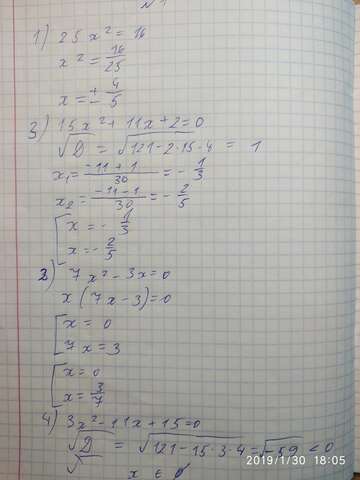 N 1
1) 25 x² = 16
x² = 16/25
x = ± 4/5
3) 15x² + 11x + 2 = 0
√D = √121-2·15·4 = 1
x₁ = -11+1/30 = - 1/3
x₂ = -11-1/30 = - 2/5
[ x = - 1/3
x = - 2/5
2) 7x² - 3x = 0
x (7x - 3) = 0
[ x = 0
7x = 3
[ x = 0
x = 3/7
4) 3x² - 11x + 15 = 0
√D = √121-15·3·4 = √-59 < 0
x ∈ ∅
2019/1/30 18:05